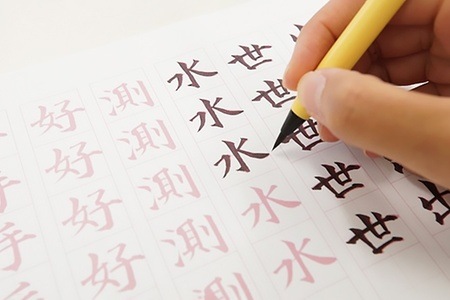 世世世世世
水水水水水
測測測測測
好好好好
手手